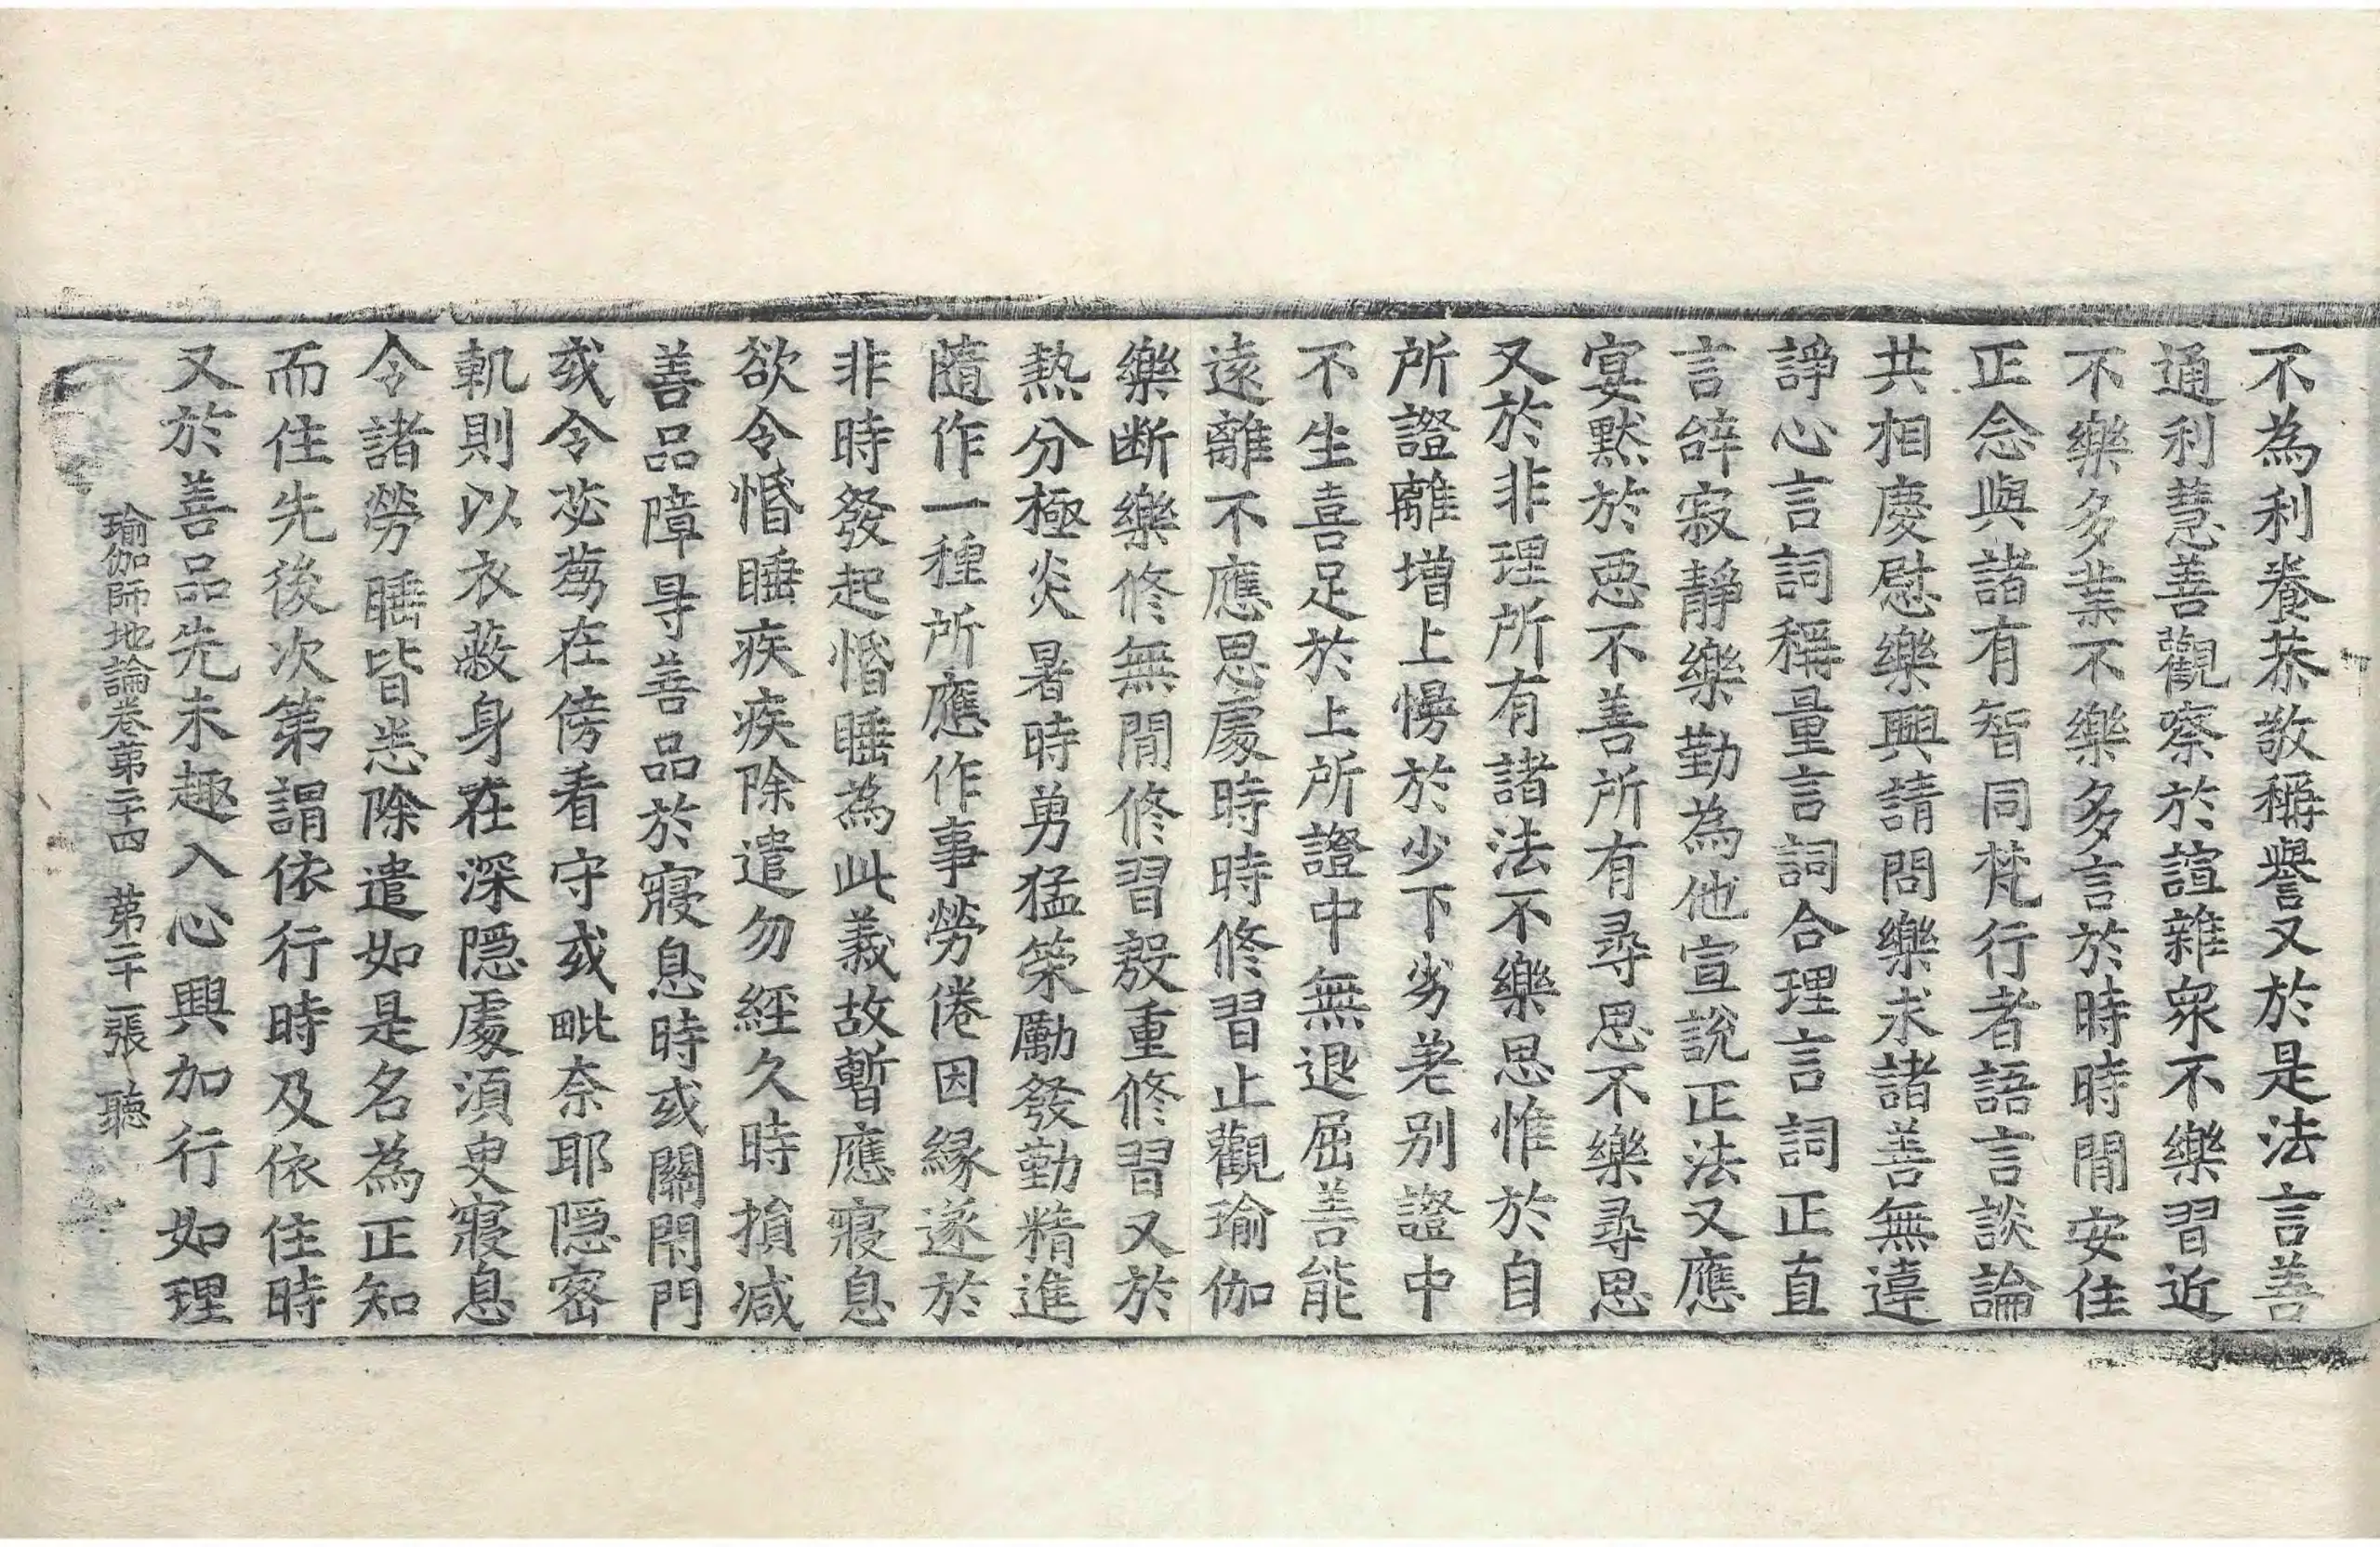 不為利養恭敬稱譽又於是法言善
通利慧善觀察於諠雜衆不樂習近
不樂多業不樂多言於時時閒安住
正念與諸有智同梵行者語言談論
共相慶慰樂興請問樂求諸善無違
諍心言詞稱量言詞合理言詞正直
言辝寂靜樂勤為他宣說正法又應
宴黙於惡不善所有尋思不樂尋思
又於非理所有諸法不樂思惟於自
所證離增上慢於少下劣差別證中
不生喜足於上所證中無退屈善能
遠離不應思處時時修習止觀瑜伽
樂断樂修無閒修習殷重修習又於
熱分極炎暑時勇猛策勵發勤精進
隨作一種所應作事勞倦因緣遂於
非時發起惛睡為此義故暫應寢息
欲令惛睡疾疾除遣勿經久時損減
善品障㝵善品於寢息時或關閇門
或令苾蒭在傍看守或毗奈耶隱密
軌則以衣蔽身在深隱處須臾寢息
令諸勞睡皆悉除遣如是名為正知
而住先後次第謂依行時及依住時
又於善品先未趣入心興加行如理
瑜伽師地論卷第二十四　第二十一張　聽